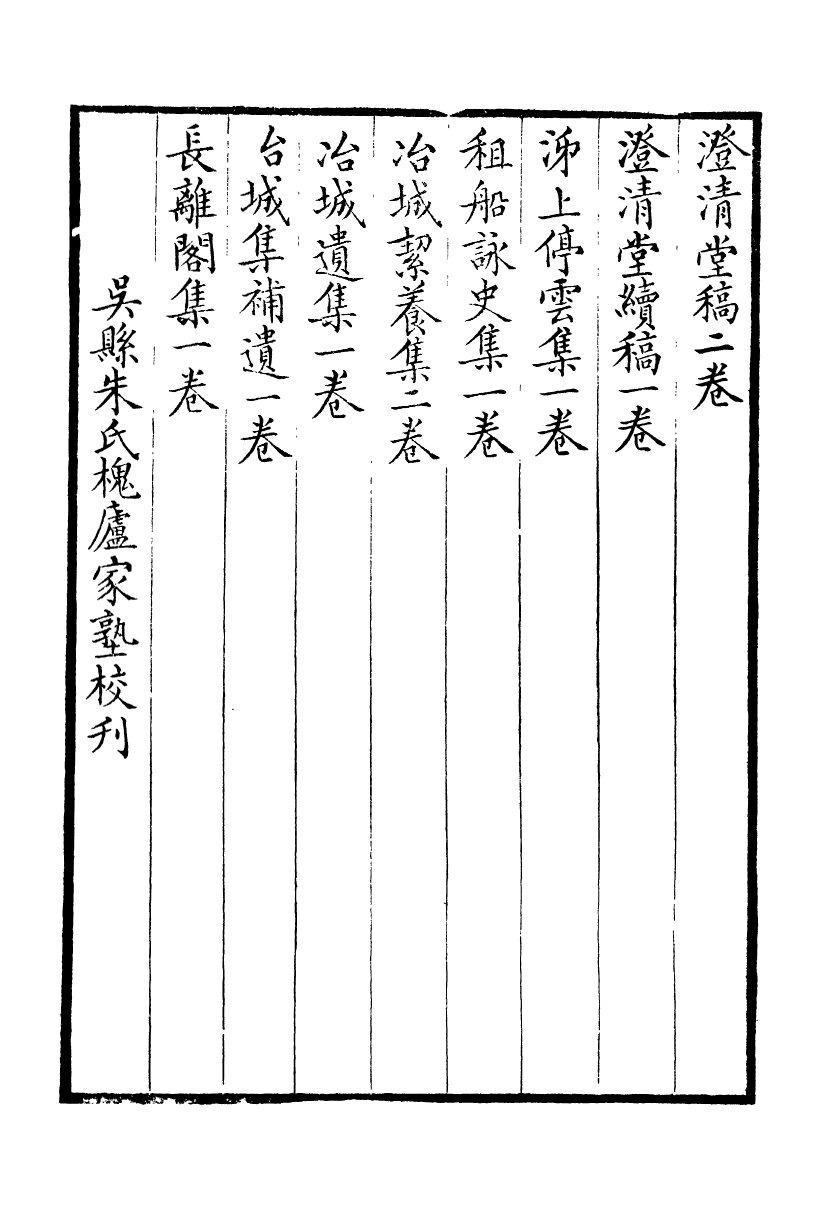 澄清堂稿二卷
澄清堂續稿一卷
泲上停雲集一卷
租船詠史集一卷
冶城絜養集二卷
冶城遺集一卷
台城集補遺一卷
長離閣集一卷
吳縣朱氏槐廬家塾校刋